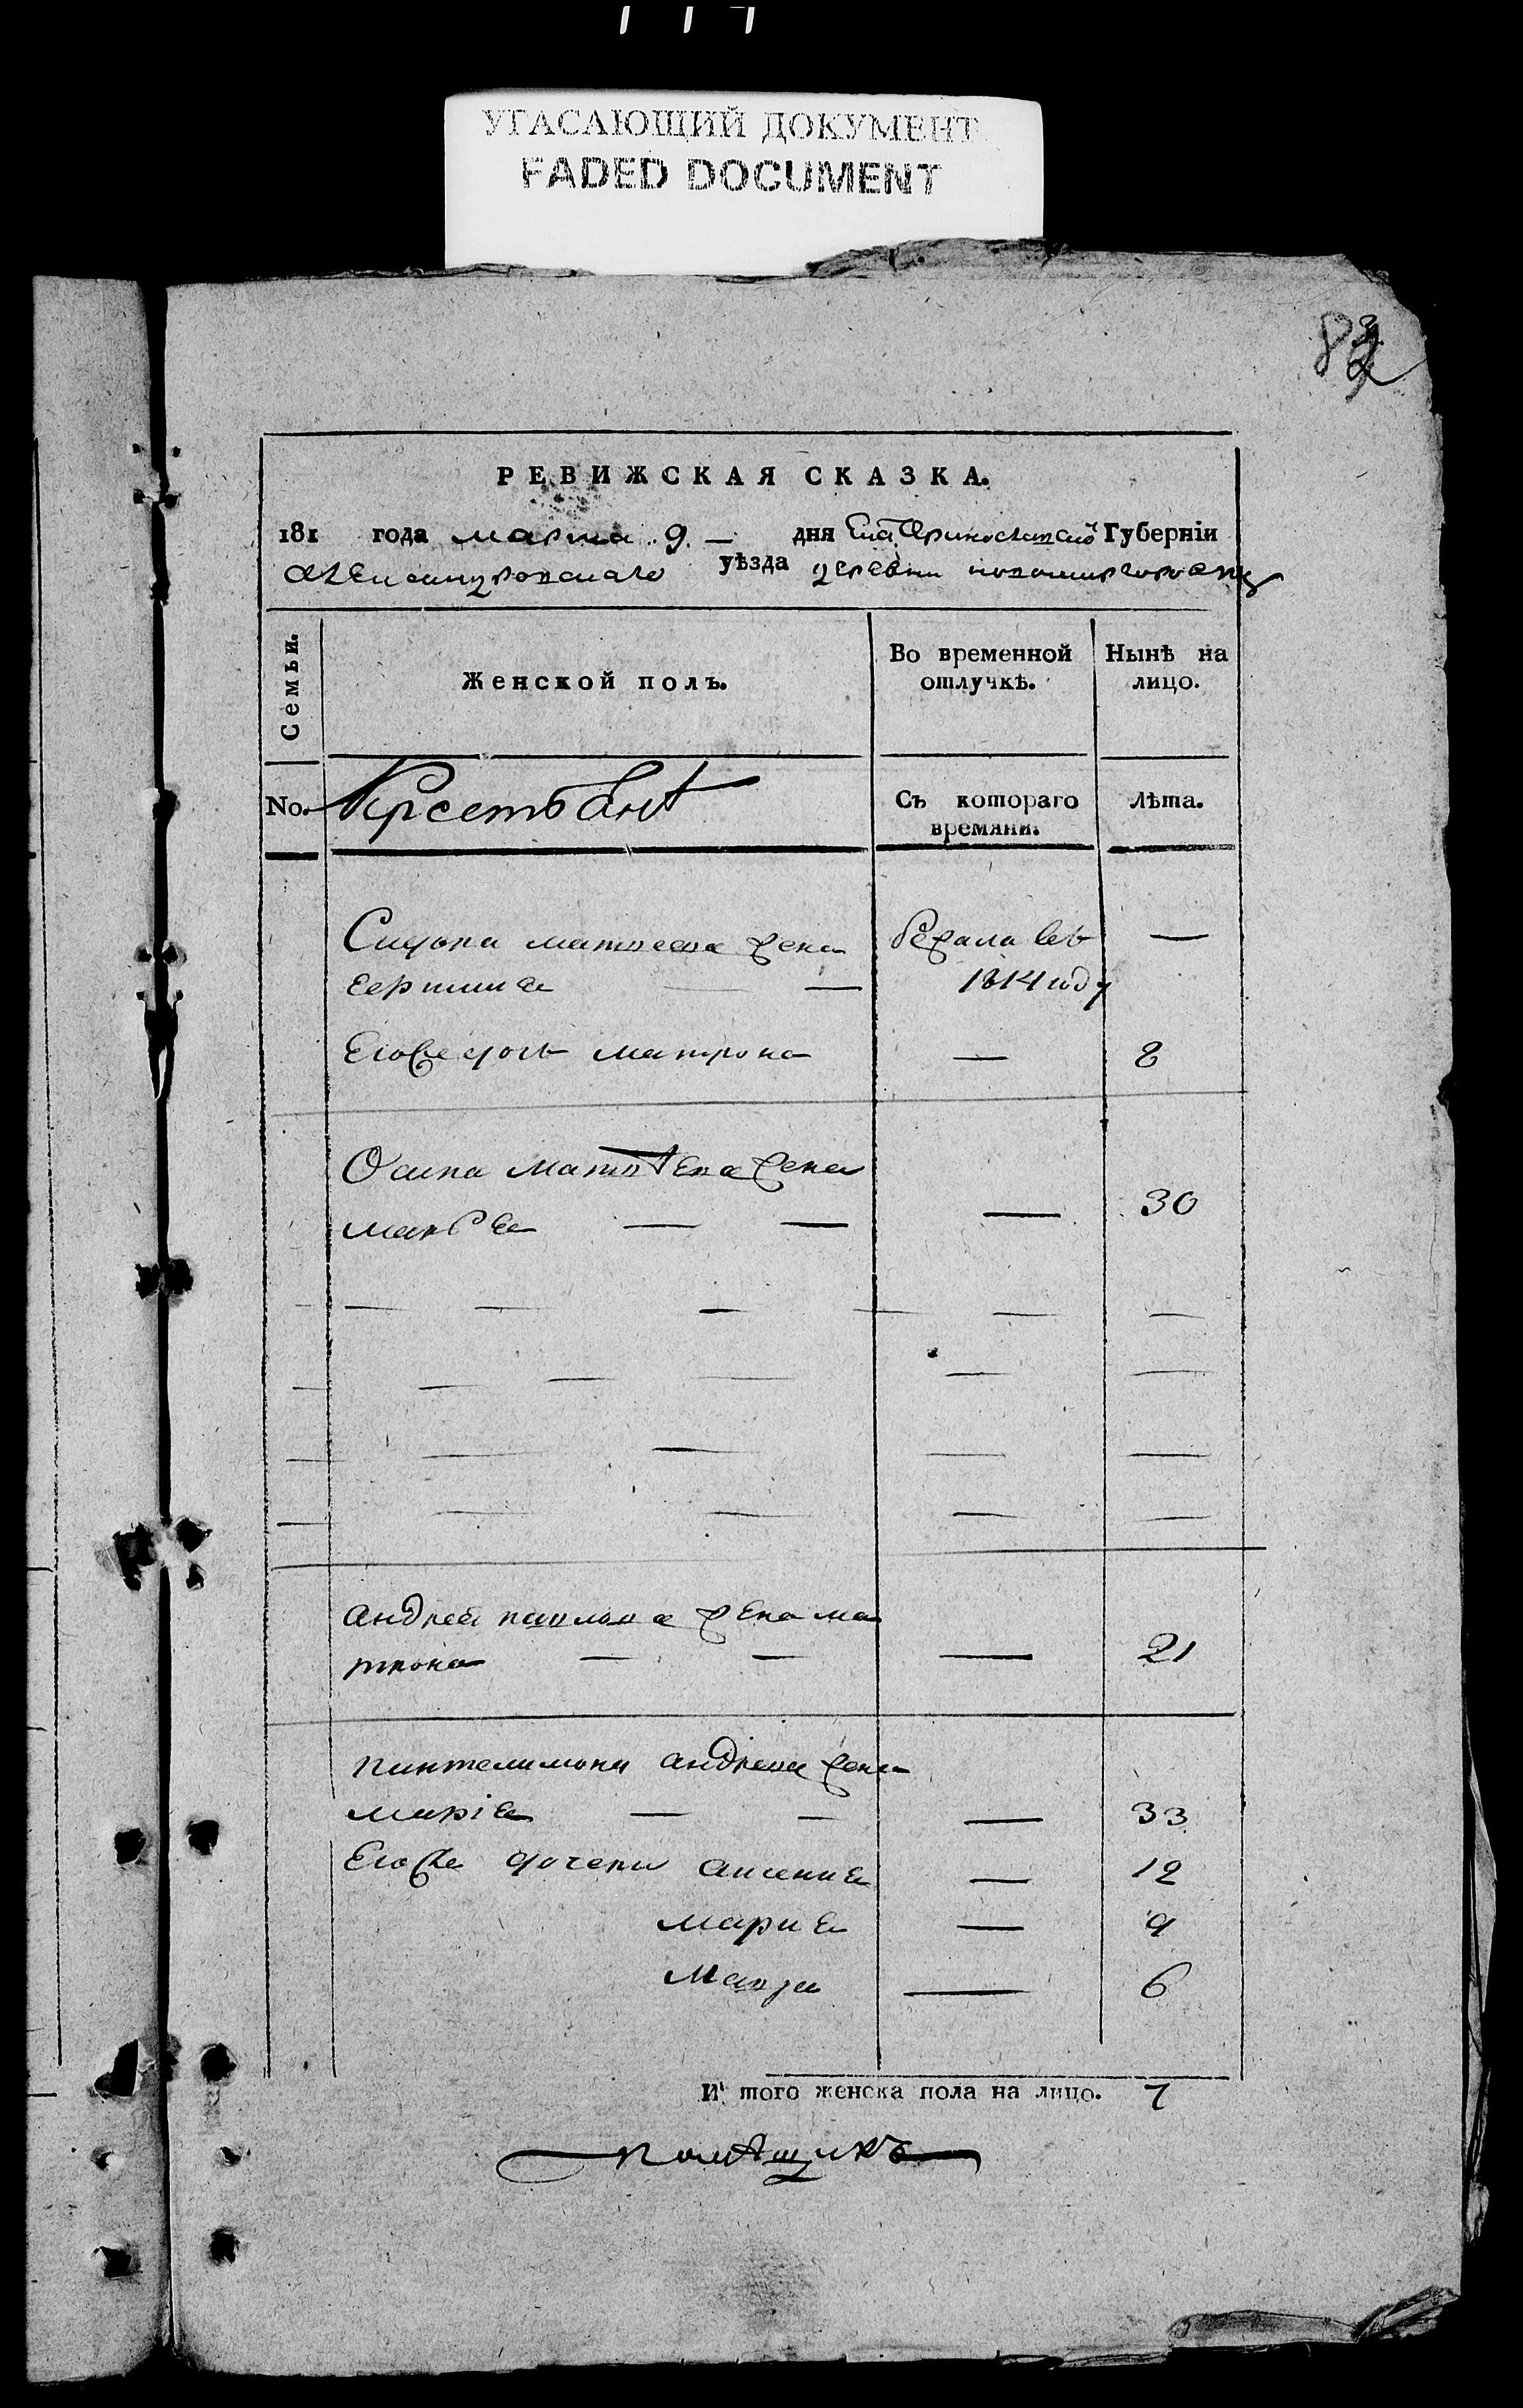 УГАСАЮЩИЙ ДОКУМЕНТ
FADED DOCUMENT
РЕВИЖСКАЯ СКАЗКА.
181 года марта 9 — дня Екатеринославской Губернїи
Александровскаго уѣзда деревни
Семьи.
Женской полъ.
Во временной отлучкѣ.
Нынѣ на лицо.
No.
Съ котораго времяни.
Лѣта.
Сидора матвеева жена бежала въ —
— — 1814 году
Егоже дочь матрона — 8
Осипа матвѣева жена
марья — — — 30
андрея павлова жена ма
трона — — — 21
пантелимона андреева жена
марія — — — 33
Егоже дочери аксения — 12
мария — 9
— 6
И того женска пола на лицо. 7
помѣщикъ